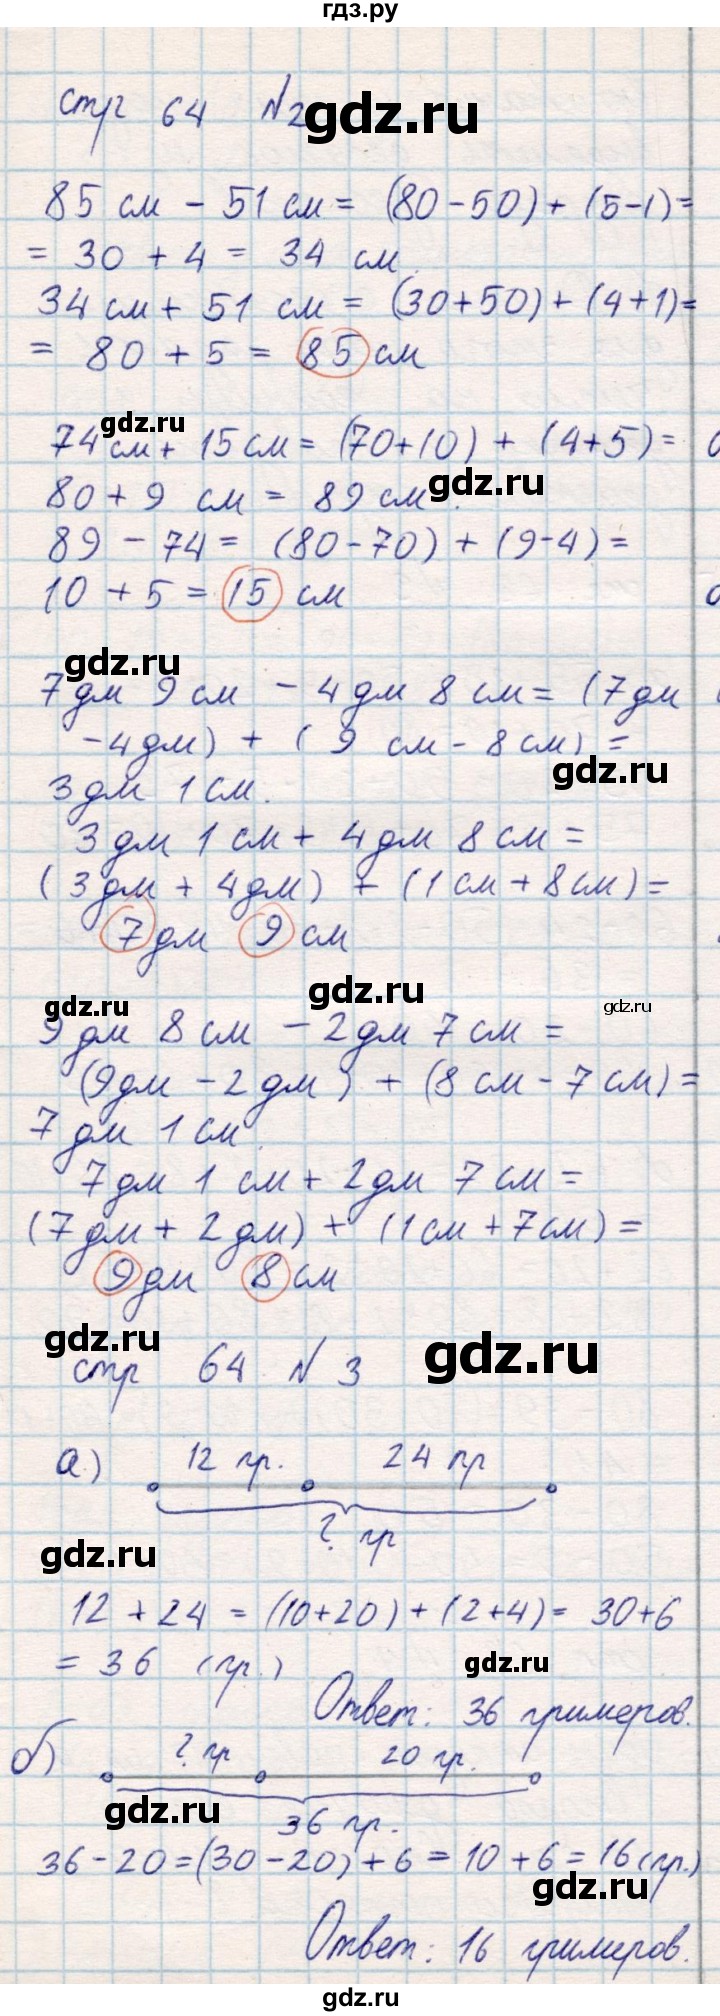 гдз.ру
стр 64 №2
gdz.ru
85 см - 51 см = (80-50) + (5-1) =
= 30 + 4 = 34 см
34 см + 51 см = (30+50) + (4+1) =
= 80 + 5 = 85 см
gdz.ru
74 см + 15 см = (70+10) + (4+5) =
gdz.ru
80 + 9 см = 89 см.
89 - 74 = (80-70) + (9-4) =
10 + 5 = 15 см
gdz.ru
7 дм 9 см - 4 дм 8 см = (7 дм
-4 дм) + (9 см - 8 см) =
gdz.ru
3 дм 1 см.
3 дм 1 см + 4 дм 8 см =
(3 дм + 4 дм) + (1 см + 8 см) =
7 дм 9 см
gdz.ru
gdz.ru
gdz.ru
9 дм 8 см - 2 дм 7 см =
(9 дм - 2 дм) + (8 см - 7 см) =
7 дм 1 см.
7 дм 1 см + 2 дм 7 см =
(7 дм + 2 дм) + (1 см + 7 см) =
9 дм 8 см
gdz.ru
gdz.ru
стр 64 № 3
а) 12 гр. 24 гр
? гр
gdz.ru
12 + 24 = (10+20) + (2+4) = 30+6
= 36 (гр.)
gdz.ru
Ответ: 36 гримеров.
б) ? гр 20 гр.
gdz.ru
36 гр.
36 - 20 = (30 - 20) + 6 = 10 + 6 = 16 (гр.)
gdz.ru
Ответ: 16 гримеров.
gdz.ru